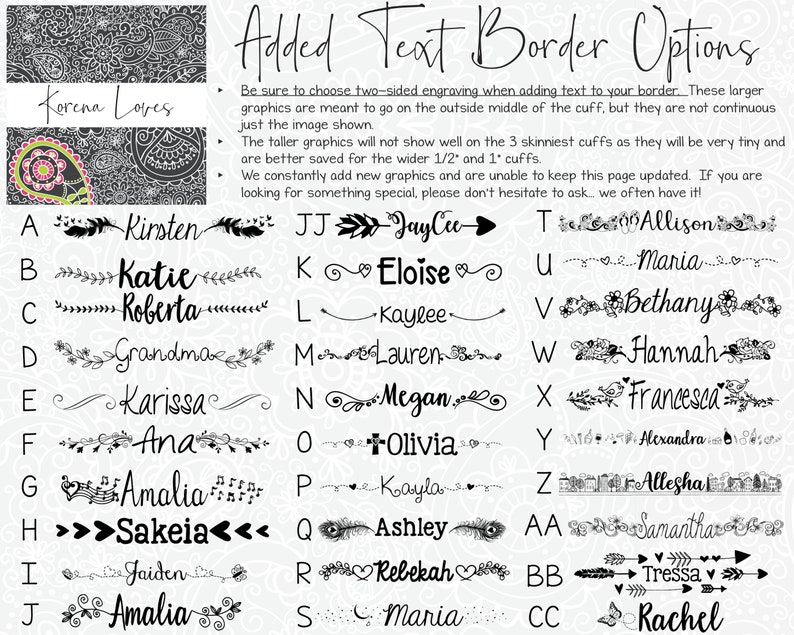 Added Text Border Options
Korena Loves
Be sure to choose two-sided engraving when adding text to your border. These larger
graphics are meant to go on the outside middle of the cuff, but they are not continuous
just the image shown.
The taller graphics will not show well on the 3 skinniest cuffs as they will be very tiny and
are better saved for the wider 1/2" and 1" cuffs.
We constantly add new graphics and are unable to keep this page updated. If you are
looking for something special, please don't hesitate to ask... we often have it!
A Kirsten
B Katie
C Roberta
D Grandma
E Karissa
F Ana
G Amalia
H Sakeia
I Jaiden
J Amalia
JJ JayCee
K Eloise
L Kaylee
M Lauren
N Megan
O Olivia
P Kayla
Q Ashley
R Rebekah
S Maria
T Allison
U Maria
V Bethany
W Hannah
X Francesca
Y Alexandra
Z Allesha
AA Samantha
BB Tressa
CC Rachel